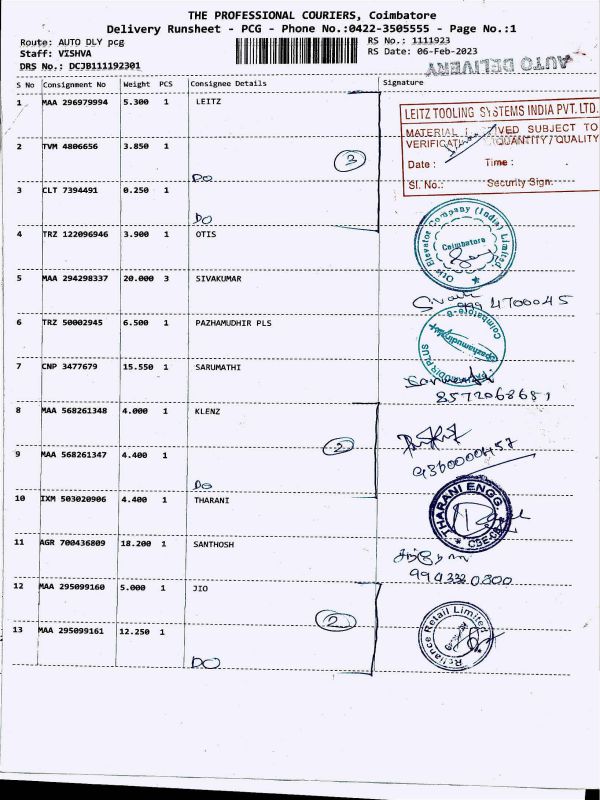 THE PROFESSIONAL COURIERS, Coimbatore
Delivery Runsheet - PCG - Phone No.:0422-3505555 - Page No.:1
Route: AUTO DLY pcg RS No.: 1111923
Staff: VISHVA RS Date: 06-Feb-2023
DRS No.: DCJB111192301 AUTO DELIVERY
S No Consignment No Weight PCS Consignee Details Signature
1 MAA 296979994 5.300 1 LEITZ
LEITZ TOOLING SYSTEMS INDIA PVT. LTD.
MATERIAL SUBJECT TO
QUANTITY / QUALITY
Date : Time :
Sl. No.: Security Sign.
2 TVM 4806656 3.850 1
3
DO
3 CLT 7394491 0.250 1
DO
4 TRZ 122096946 3.900 1 OTIS
Otis Elevator Company (India) Limited.
Coimbatore
5 MAA 294298337 20.000 3 SIVAKUMAR
994 4700045
6 TRZ 50002945 6.500 1 PAZHAMUDHIR PLS
7 CNP 3477679 15.550 1 SARUMATHI
8572068681
8 MAA 568261348 4.000 1 KLENZ
2
9 MAA 568261347 4.400 1
DO
10 IXM 503020906 4.400 1 THARANI
THARANI ENGG.
11 AGR 700436809 18.200 1 SANTHOSH
12 MAA 295099160 5.000 1 JIO
2
Reliance Retail Limited
13 MAA 295099161 12.250 1
DO